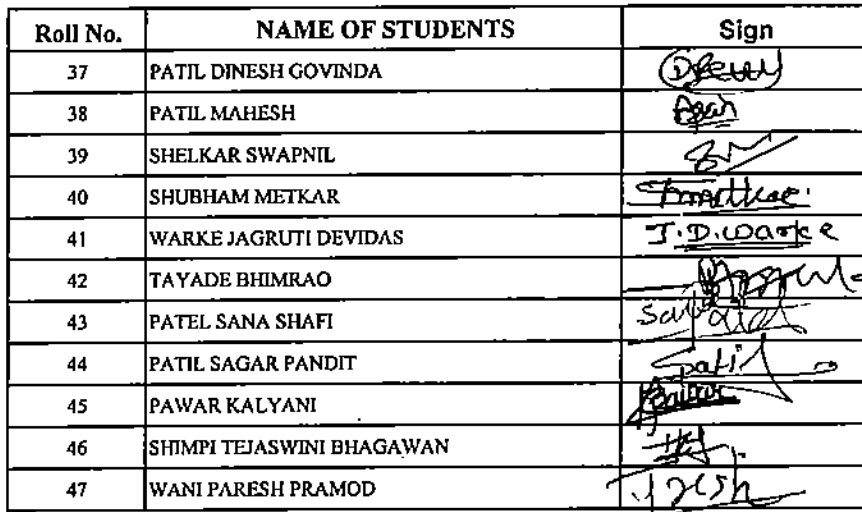 Roll No. NAME OF STUDENTS Sign
37 PATIL DINESH GOVINDA
38 PATIL MAHESH
39 SHELKAR SWAPNIL
40 SHUBHAM METKAR
41 WARKE JAGRUTI DEVIDAS J.D.Warke
42 TAYADE BHIMRAO
43 PATEL SANA SHAFI
44 PATIL SAGAR PANDIT
45 PAWAR KALYANI
46 SHIMPI TEJASWINI BHAGAWAN
47 WANI PARESH PRAMOD